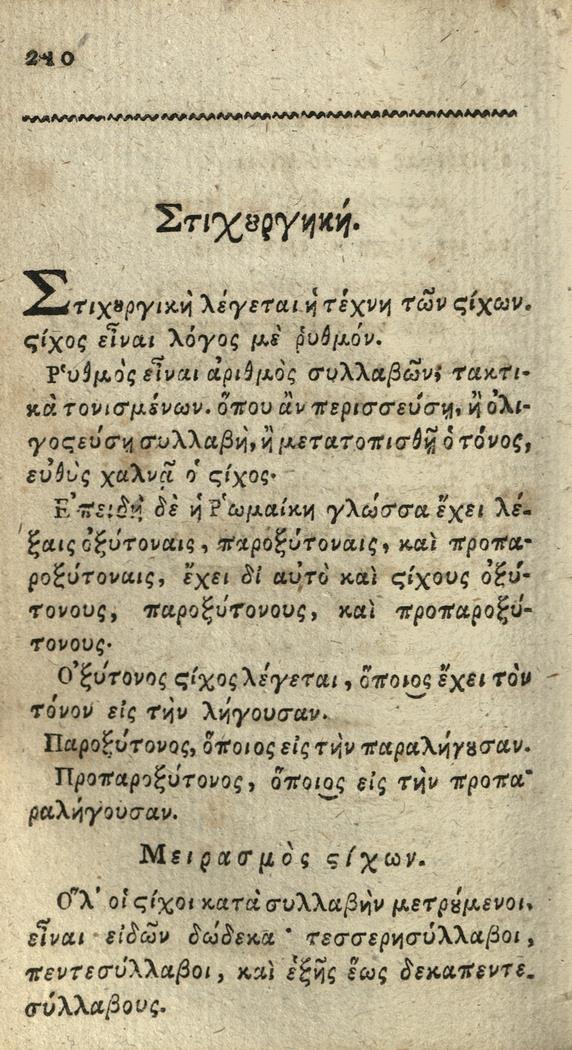 210
Στιχȣργηκή.
Στιχȣργικὴ λέγεται ἡ τέχνη τῶν ϛίχων.
ϛίχος εἶναι λόγος μὲ ῥυθμόν.
Ῥυθμὸς εἶναι ἀριθμὸς συλλαβῶν, τακτι-
κὰ τονισμένων. ὅπου ἂν περισσεύσῃ, ἢ ὀλι-
γοϛεύσῃ συλλαβὴ, ἢ μετατοπισθῇ ὁ τόνος,
εὐθὺς χαλνᾷ ὁ ϛίχος·
Ἐπειδὴ δὲ ἡ Ῥωμαίκη γλώσσα ἔχει λέ-
ξαις ὀξύτοναις, παροξύτοναις, καὶ προπα-
ροξύτοναις, ἔχει δι αὐτὸ καὶ ϛίχους ὀξύ-
τονους, παροξύτονους, καὶ προπαροξύ-
τονους·
Ὀξύτονος ϛίχος λέγεται, ὅποιος ἔχει τὸν
τόνον εἰς τὴν λήγουσαν.
Παροξύτονος, ὅποιος εἰς τὴν παραλήγȣσαν.
Προπαροξύτονος, ὅποιος εἰς τὴν προπα-
ραλήγουσαν.
Μειρασμὸς ϛίχων.
Ὅλ' οἱ ϛίχοι κατὰ συλλαβὴν μετρȣ́μενοι,
εἶναι εἰδῶν δώδεκα· τεσσερησύλλαβοι,
πεντεσύλλαβοι, καὶ ἑξῆς ἕως δεκαπεντε-
σύλλαβους.